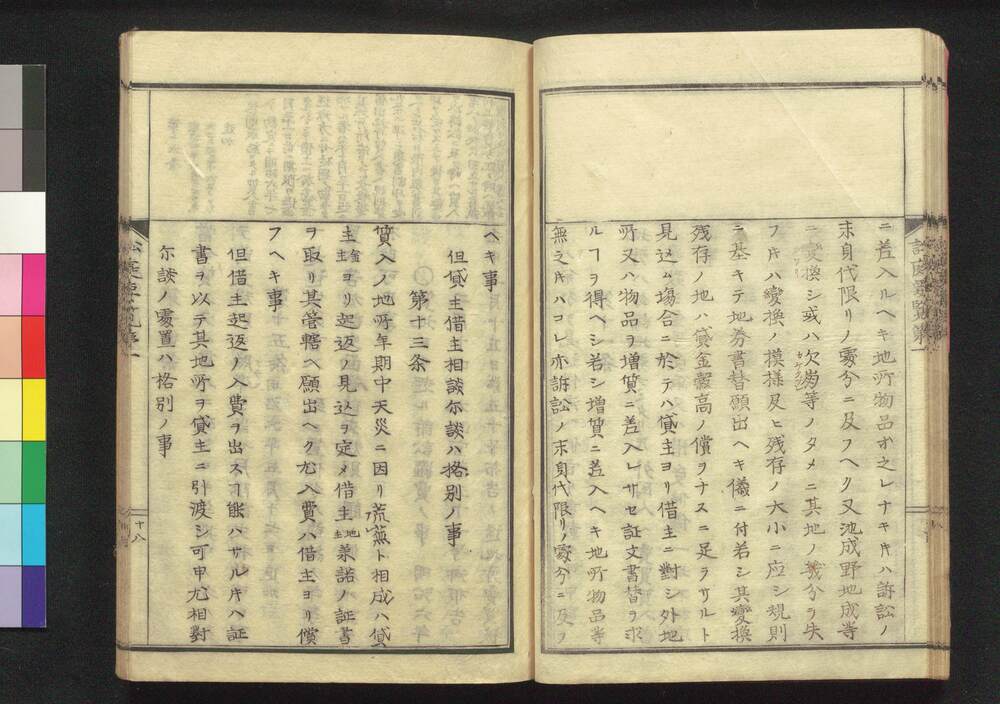 ニ差入ルヘキ地所物品オ之レナキ𪜈ハ訴訟ノ
末身代限リノ處分ニ及フヘク又池成野地成等
ニ變換シ或ハ欠崩等ノタメニ其地ノ幾分ヲ失
フ𪜈ハ變換ノ模様及ヒ残存ノ大小ニ応シ規則
ニ基キテ地券書替願出ヘキ儀ニ付若シ其變換
残存ノ地ハ貸金穀高ノ償ヲナスニ足ラサルト
見込ム塲合ニ於テハ貸主ヨリ借主ニ對シ外地
所又ハ物品ヲ増質ニ差入レサセ証文書替ヲ求
ルヿヲ得ヘシ若シ増質ニ差入ヘキ地所物品等
無之𪜈ハコレ亦訴訟ノ末身代限リノ處分ニ及フ
ヘキ事
但貸主借主相談尓談ハ格別ノ事
第十三条
質入ノ地所年期中天災ニ因リ荒蕪ト相成ハ貸
主金主ヨリ起返ノ見込ヲ定メ借主地主兼諾ノ証書
ヲ取リ其管轄ヘ願出ヘク尤入費ハ借主ヨリ償
フヘキ事
但借主起返ノ入費ヲ出スヿ能ハサル𪜈ハ証
書ヲ以テ其地所ヲ貸主ニ引渡シ可申尤相對
尓談ノ處置ハ格別ノ事
十八